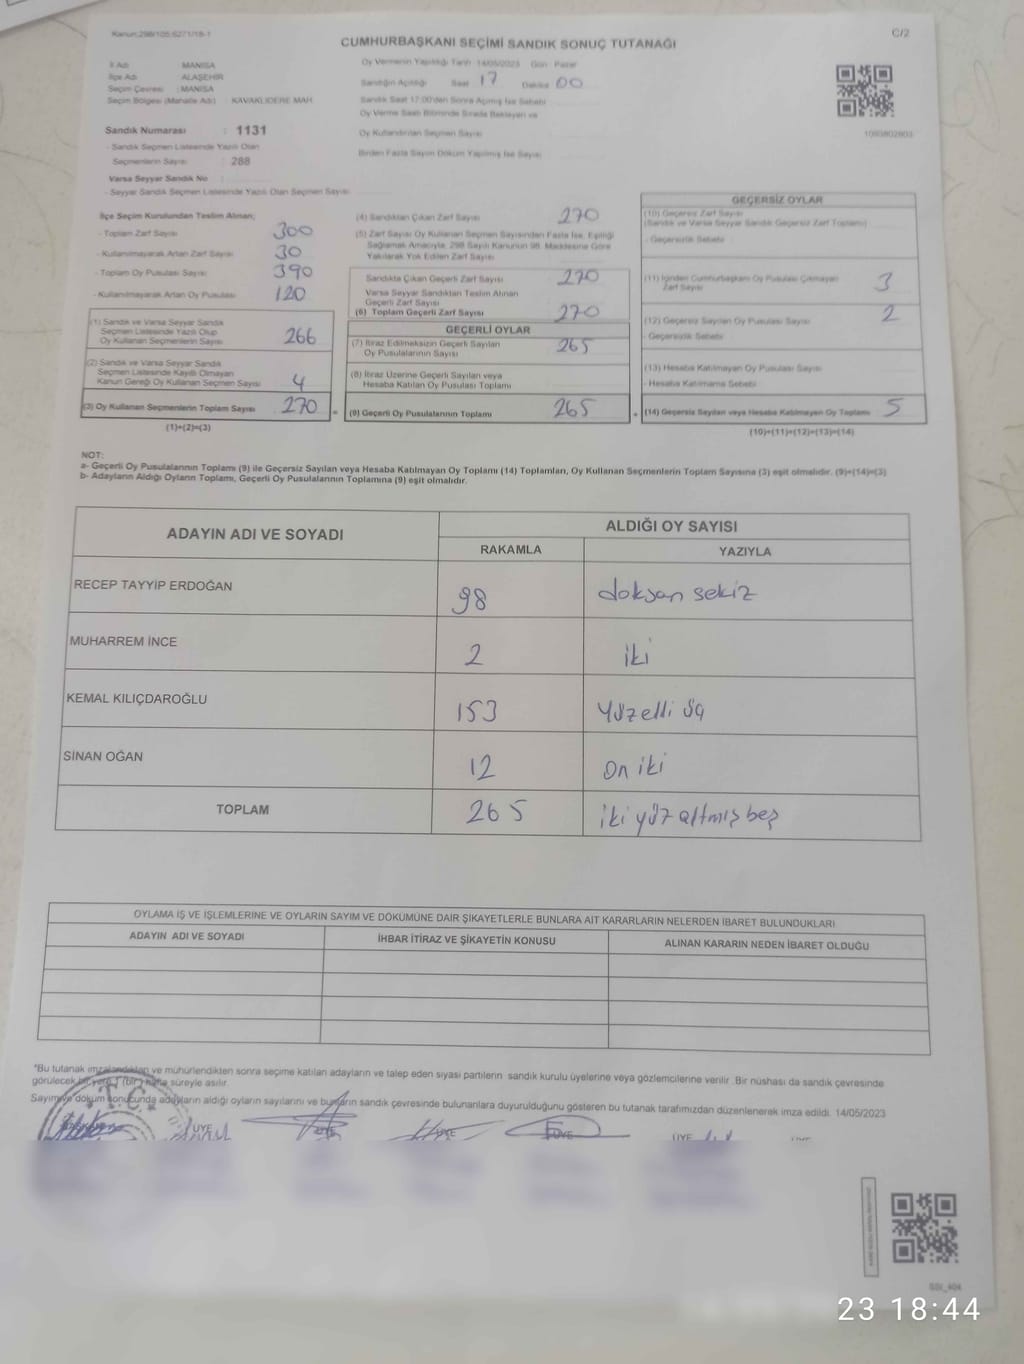 Kanun:298/105:6271/18-1
C/2
CUMHURBAŞKANI SEÇİMİ SANDIK SONUÇ TUTANAĞI
İl Adı : MANİSA
İlçe Adı : ALAŞEHİR
Seçim Çevresi : MANİSA
Seçim Bölgesi (Mahalle Adı) : KAVAKLIDERE MAH.
Oy Vermenin Yapıldığı Tarih 14/05/2023 Gün : Pazar
Sandığın Açıldığı Saat 17 Dakika 00
Sandık Saat 17:00'den Sonra Açılmış İse Sebebi
Oy Verme Saati Bitiminde Sırada Bekleyen ve
Oy Kullandırılan Seçmen Sayısı
Birden Fazla Sayım Döküm Yapılmış İse Sayısı
Sandık Numarası : 1131
- Sandık Seçmen Listesinde Yazılı Olan
Seçmenlerin Sayısı : 288
Varsa Seyyar Sandık No
- Seyyar Sandık Seçmen Listesinde Yazılı Olan Seçmen Sayısı
İlçe Seçim Kurulundan Teslim Alınan;
- Toplam Zarf Sayısı 300
- Kullanılmayarak Artan Zarf Sayısı 30
- Toplam Oy Pusulası Sayısı 390
- Kullanılmayarak Artan Oy Pusulası 120
(1) Sandık ve Varsa Seyyar Sandık
Seçmen Listesinde Yazılı Olup
Oy Kullanan Seçmenlerin Sayısı 266
(2) Sandık ve Varsa Seyyar Sandık
Seçmen Listesinde Kayıtlı Olmayan
Kanun Gereği Oy Kullanan Seçmen Sayısı 4
(3) Oy Kullanan Seçmenlerin Toplam Sayısı 270
(1)+(2)=(3)
(4) Sandıktan Çıkan Zarf Sayısı 270
(5) Zarf Sayısı Oy Kullanan Seçmen Sayısından Fazla İse, Eşitliği
Sağlamak Amacıyla, 298 Sayılı Kanunun 98. Maddesine Göre
Yakılarak Yok Edilen Zarf Sayısı
Sandıkta Çıkan Geçerli Zarf Sayısı 270
Varsa Seyyar Sandıktan Teslim Alınan
Geçerli Zarf Sayısı
(6) Toplam Geçerli Zarf Sayısı 270
GEÇERLİ OYLAR
(7) İtiraz Edilmeksizin Geçerli Sayılan
Oy Pusulalarının Sayısı 265
(8) İtiraz Üzerine Geçerli Sayılan veya
Hesaba Katılan Oy Pusulası Toplamı
= (9) Geçerli Oy Pusulalarının Toplamı 265
GEÇERSİZ OYLAR
(10) Geçersiz Zarf Sayısı
(Sandık ve Varsa Seyyar Sandık Geçersiz Zarf Toplamı)
- Geçersizlik Sebebi
(11) İçinden Cumhurbaşkanı Oy Pusulası Çıkmayan
Zarf Sayısı 3
(12) Geçersiz Sayılan Oy Pusulası Sayısı 2
- Geçersizlik Sebebi
(13) Hesaba Katılmayan Oy Pusulası Sayısı
- Hesaba Katılmama Sebebi
+ (14) Geçersiz Sayılan veya Hesaba Katılmayan Oy Toplamı 5
(10)+(11)+(12)+(13)=(14)
NOT:
a- Geçerli Oy Pusulalarının Toplamı (9) ile Geçersiz Sayılan veya Hesaba Katılmayan Oy Toplamı (14) Toplamları, Oy Kullanan Seçmenlerin Toplam Sayısına (3) eşit olmalıdır. (9)+(14)=(3)
b- Adayların Aldığı Oyların Toplamı, Geçerli Oy Pusulalarının Toplamına (9) eşit olmalıdır.
ADAYIN ADI VE SOYADI
ALDIĞI OY SAYISI
RAKAMLA YAZIYLA
RECEP TAYYİP ERDOĞAN 98 doksan sekiz
MUHARREM İNCE 2 iki
KEMAL KILIÇDAROĞLU 153 yüzelli üç
SİNAN OĞAN 12 on iki
TOPLAM 265 iki yüz altmış beş
OYLAMA İŞ VE İŞLEMLERİNE VE OYLARIN SAYIM VE DÖKÜMÜNE DAİR ŞİKAYETLERLE BUNLARA AİT KARARLARIN NELERDEN İBARET BULUNDUKLARI
ADAYIN ADI VE SOYADI İHBAR İTİRAZ VE ŞİKAYETİN KONUSU ALINAN KARARIN NEDEN İBARET OLDUĞU
*Bu tutanak imzalandıktan ve mühürlendikten sonra seçime katılan adayların ve talep eden siyasi partilerin sandık kurulu üyelerine veya gözlemcilerine verilir. Bir nüshası da sandık çevresinde
görülecek bir yere 1 (bir) hafta süreyle asılır.
Sayım ve döküm sonucunda adayların aldığı oyların sayılarını ve bunların sandık çevresinde bulunanlara duyurulduğunu gösteren bu tutanak tarafımızdan düzenlenerek imza edildi. 14/05/2023
T.C.
BAŞKAN ÜYE ÜYE ÜYE ÜYE ÜYE
23 18:44